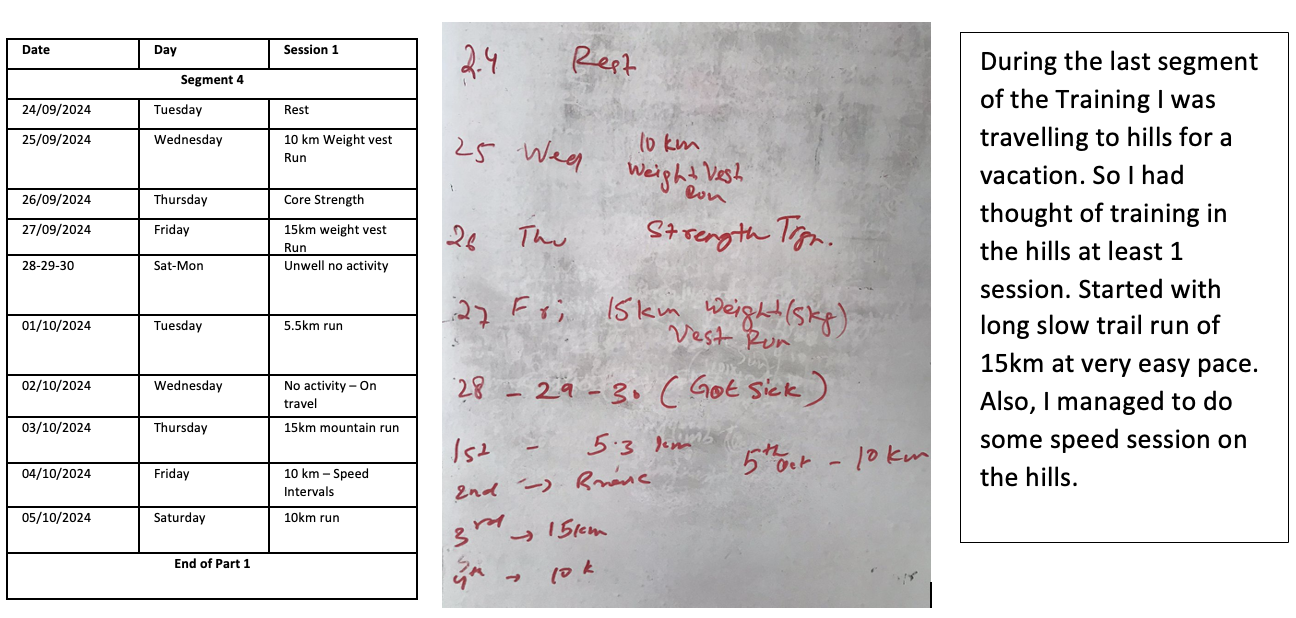 Date Day Session 1
Segment 4
24/09/2024 Tuesday Rest
25/09/2024 Wednesday 10 km Weight vest
Run
26/09/2024 Thursday Core Strength
27/09/2024 Friday 15km weight vest
Run
28-29-30 Sat-Mon Unwell no activity
01/10/2024 Tuesday 5.5km run
02/10/2024 Wednesday No activity – On
travel
03/10/2024 Thursday 15km mountain run
04/10/2024 Friday 10 km – Speed
Intervals
05/10/2024 Saturday 10km run
End of Part 1
24 Rest
25 Wed 10 km
Weight Vest
Run
26 Thu Strength Trgn.
27 Fri; 15km Weight (5kg)
Vest Run
28 - 29 - 30 (Got Sick)
1st - 5.3 km
5th Oct - 10 km
2nd →
3rd → 15km
4th → 10 k
During the last segment
of the Training I was
travelling to hills for a
vacation. So I had
thought of training in
the hills at least 1
session. Started with
long slow trail run of
15km at very easy pace.
Also, I managed to do
some speed session on
the hills.